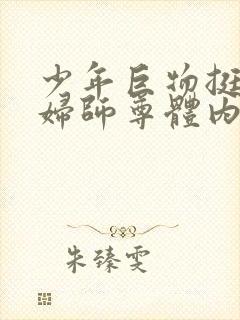 少年巨物挺
婦師尊體內
朱臻雯